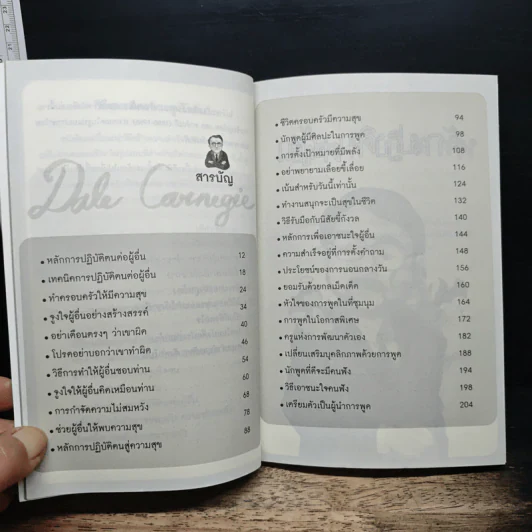 สารบัญ
Dale Carnegie
• หลักการปฏิบัติตนต่อผู้อื่น 12
• เทคนิคการปฏิบัติตนต่อผู้อื่น 18
• ทำครอบครัวให้มีความสุข 24
• จูงใจผู้อื่นอย่างสร้างสรรค์ 34
• อย่าเตือนตรงๆ ว่าเขาผิด 40
• โปรดอย่าบอกว่าเขาทำผิด 46
• วิธีการทำให้ผู้อื่นชอบท่าน 54
• จูงใจให้ผู้อื่นคิดเหมือนท่าน 60
• การกำจัดความไม่สมหวัง 68
• ช่วยผู้อื่นให้พบความสุข 78
• หลักการปฏิบัติตนสู่ความสุข 88
• ชีวิตครอบครัวมีความสุข 94
• นักพูดผู้มีศิลปะในการพูด 98
• การตั้งเป้าหมายที่มีพลัง 108
• อย่าพยายามเลื่อยขี้เลื่อย 116
• เน้นสำหรับวันนี้เท่านั้น 124
• ทำงานสนุกจะเป็นสุขในชีวิต 132
• วิธีรับมือกับนิสัยขี้กังวล 140
• หลักการเพื่อเอาชนะใจผู้อื่น 144
• ความสำเร็จอยู่ที่การตั้งคำถาม 148
• ประโยชน์ของการนอนกลางวัน 156
• ยอมรับด้วยกลเม็ดเด็ด 160
• หัวใจของการพูดในที่ชุมนุม 164
• การพูดในโอกาสพิเศษ 172
• ครูแห่งการพัฒนาตัวเอง 182
• เปลี่ยนเสริมบุคลิกภาพด้วยการพูด 188
• นักพูดที่ดีจะมีคนฟัง 194
• วิธีเอาชนะใจคนฟัง 198
• เตรียมตัวเป็นผู้นำการพูด 204